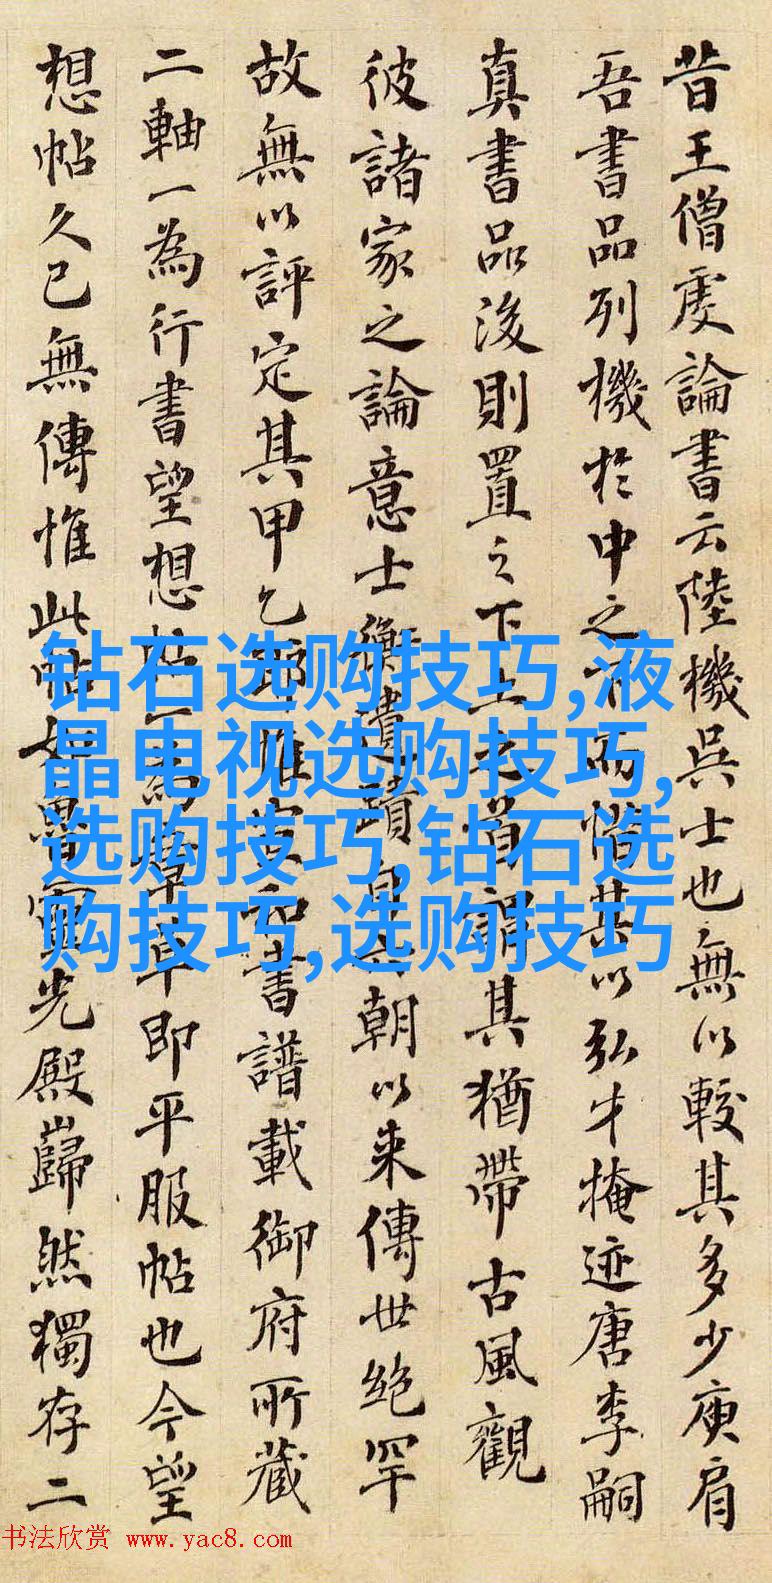 昔王僧虔論書云陸機吳士也無以較其多少庾肩
吾書品列機於中之下而惜其以弘才掩迹唐李嗣
真書品後則置之下上之首謂其猶帶古風觀
彼諸家之論意士衡遺蹟自六朝以来傳世絶罕
故無以評定其甲乙耶惟宣和書譜載御府所藏
二軸一為行書望想帖一為章草即平服帖也今望
想帖久已無傳惟此帖如魯靈光殿巋然獨存二
钻石选购技巧,液
晶电视选购技巧,
选购技巧,钻石选
购技巧,选购技巧
书法欣赏 www.yac8.com